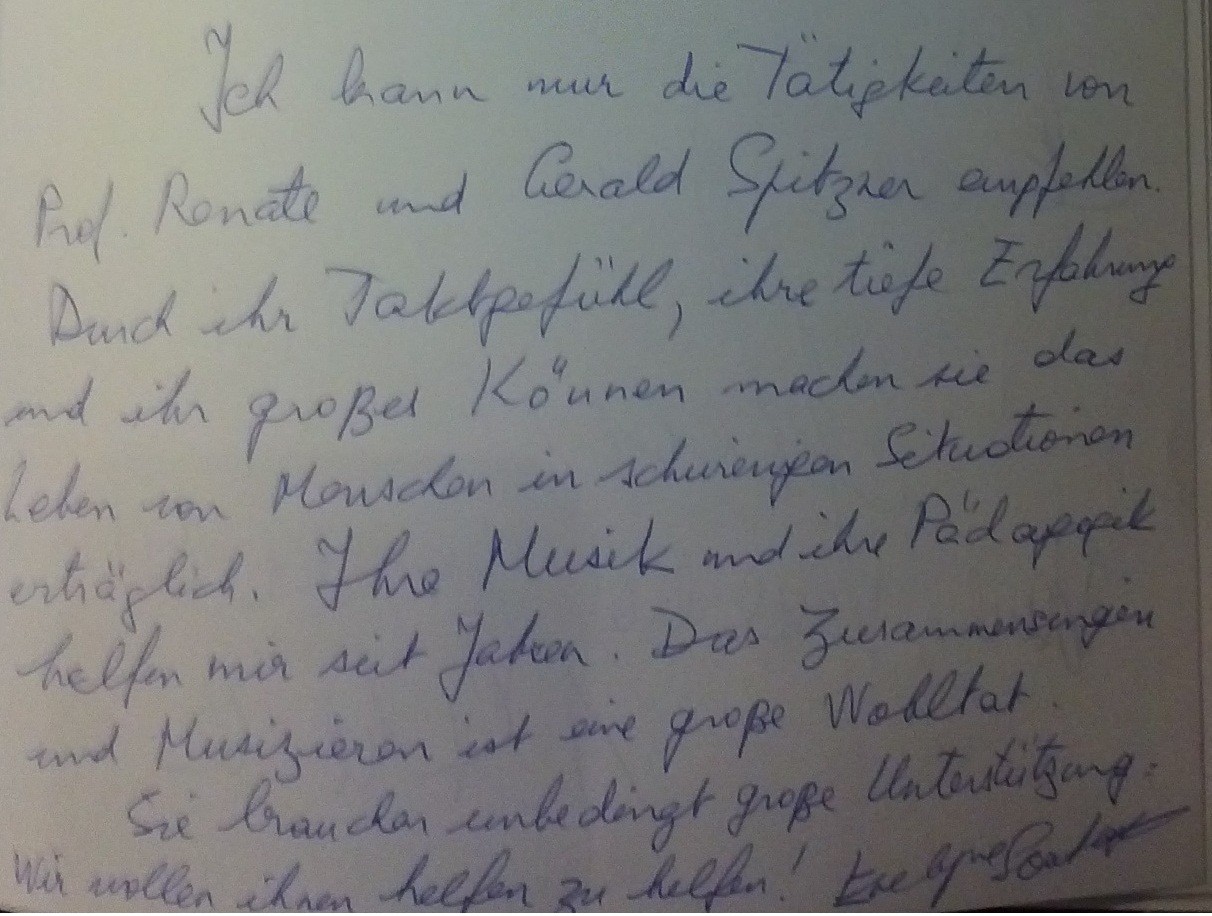 Ich kann nur die Tätigkeiten von
Prof. Renate und Gerald Spitzner empfehlen.
Durch ihr Taktgefühl, ihre tiefe Erfahrung
und ihr großes Können machen sie das
Leben von Menschen in schwierigen Situationen
erträglich. Ihre Musik und ihre Pädagogik
helfen mir seit Jahren. Das Zusammensingen
und Musizieren ist eine große Wohltat.
Sie brauchen unbedingt große Unterstützung.
Wir wollen ihnen helfen zu helfen!